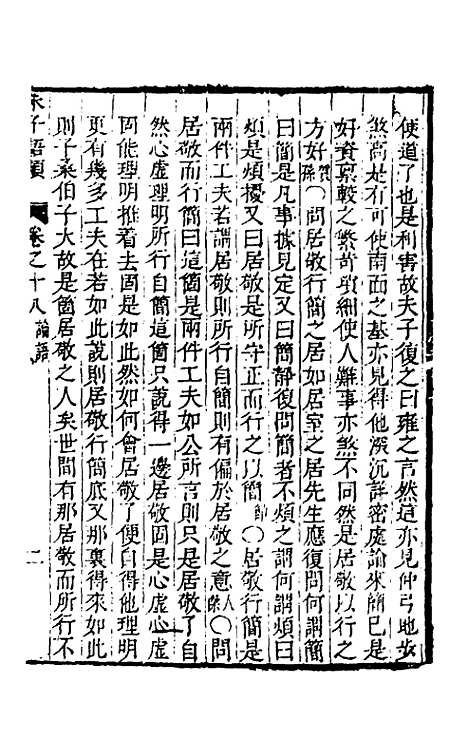 便道了也是利害故夫子復之曰雍之言然這亦見仲弓地步
煞高是有可使南面之基亦見得他深沉詳密處論來簡已是
好資禀較之繁苛瑣細使人難事亦煞不同然是居敬以行之
方好賀孫〇問居敬行簡之居如居室之居先生應復問何謂簡
曰簡是凡事據見定又曰簡靜復問簡者不煩之謂何謂煩曰
煩是煩擾又曰居敬是所守正而行之以簡節〇居敬行簡是
兩件工夫若謂居敬則所行自簡則有偏於居敬之意人傑〇問
居敬而行簡曰這箇是兩件工夫如公所言則只是居敬了自
然心虛理明所行自簡這箇只說得一邊居敬固是心虛心虛
固能理明推着去固是如此然如何會居敬了便自得他理明
更有幾多工夫在若如此說則居敬行簡底又那裏得來如此
則子桑伯子大故是箇居敬之人矣世間有那居敬而所行不
朱子語類 卷之十八 論語 二